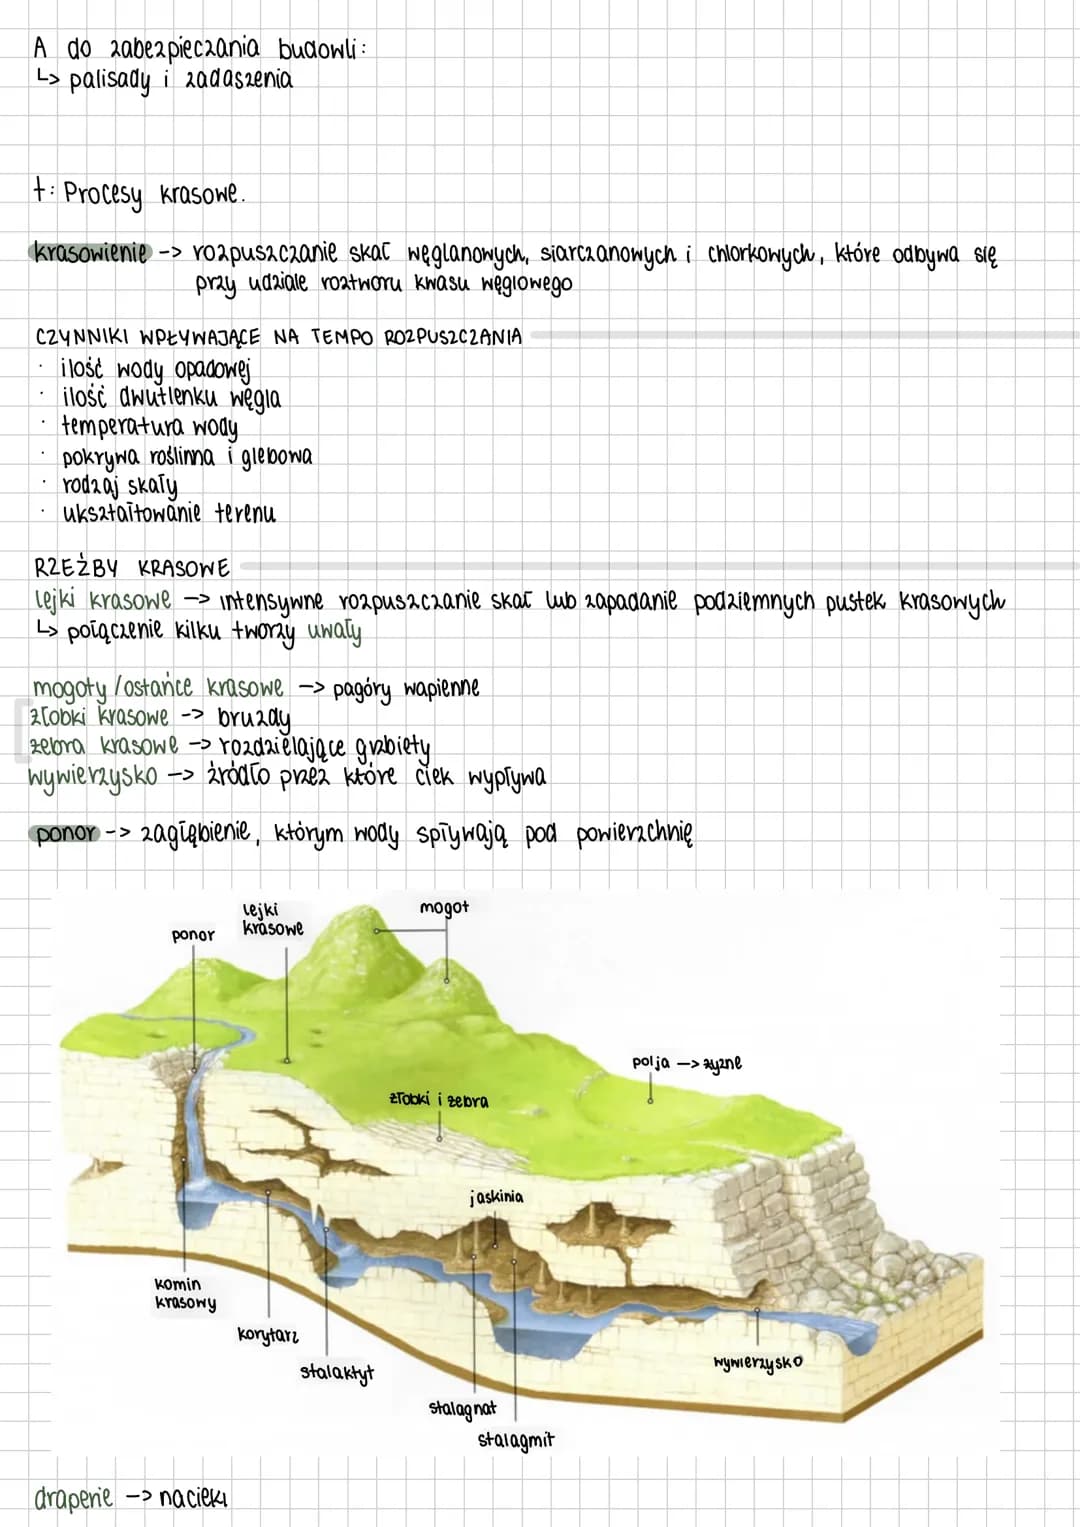 A do zabezpieczania budowli:
↳ palisady i zadaszenia
t: Procesy krasowe.
krasowienie -> rozpuszczanie skał węglanowych, siarczanowych i chlorkowych, które odbywa się
przy udziale roztworu kwasu węglowego
CZYNNIKI WPŁYWAJĄCE NA TEMPO ROZPUSZCZANIA
· ilość wody opadowej
· ilość dwutlenku węgla
· temperatura wody
· pokrywa roślinna i glebowa
· rodzaj skały
· ukształtowanie terenu
RZEŹBY KRASOWE
lejki krasowe -> intensywne rozpuszczanie skał lub zapadanie podziemnych pustek krasowych
↳ połączenie kilku tworzy uwały
mogoty /ostańce krasowe -> pagóry wapienne
żłobki krasowe -> bruzdy
żebra krasowe -> rozdzielające grzbiety
wywierzysko -> źródło przez które ciek wypływa
ponor -> zagłębienie, którym wody spływają pod powierzchnię
lejki
krasowe
mogot
ponor
polja -> żyzne
żłobki i żebra
jaskinia
komin
krasowy
korytarz
stalaktyt
wywierzysko
stalagnat
stalagmit
draperie -> nacieki